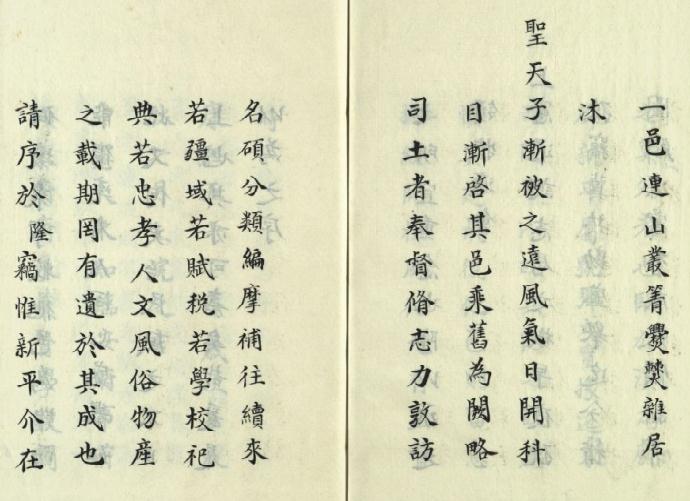 一邑連山叢箐爨僰雜居
沐
聖天子漸被之遠風氣日開科
目漸啓其邑乘舊為闕略
司土者奉督脩志力敦訪
名碩分類編摩補往續來
若疆域若賦稅若學校祀
典若忠孝人文風俗物產
之載期罔有遺於其成也
請序於隆竊惟新平介在